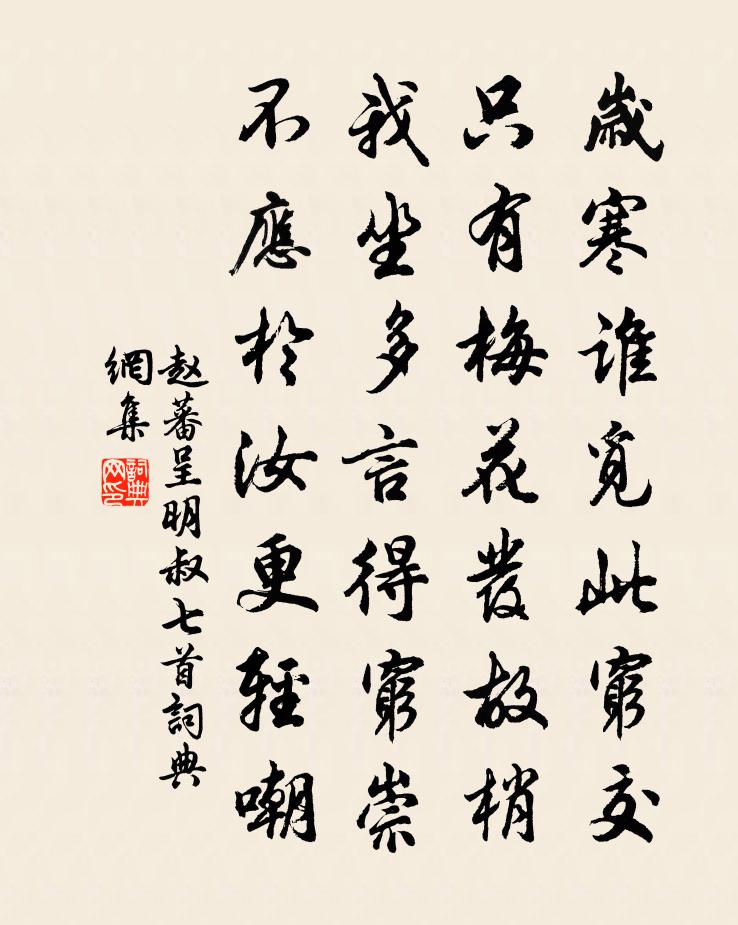 歲寒誰覓此窮交
只有梅花發故梢
我坐多言得窮崇
不應於汝更輕嘲
赵蕃呈明叔七首詞典
網集
詞典
网印